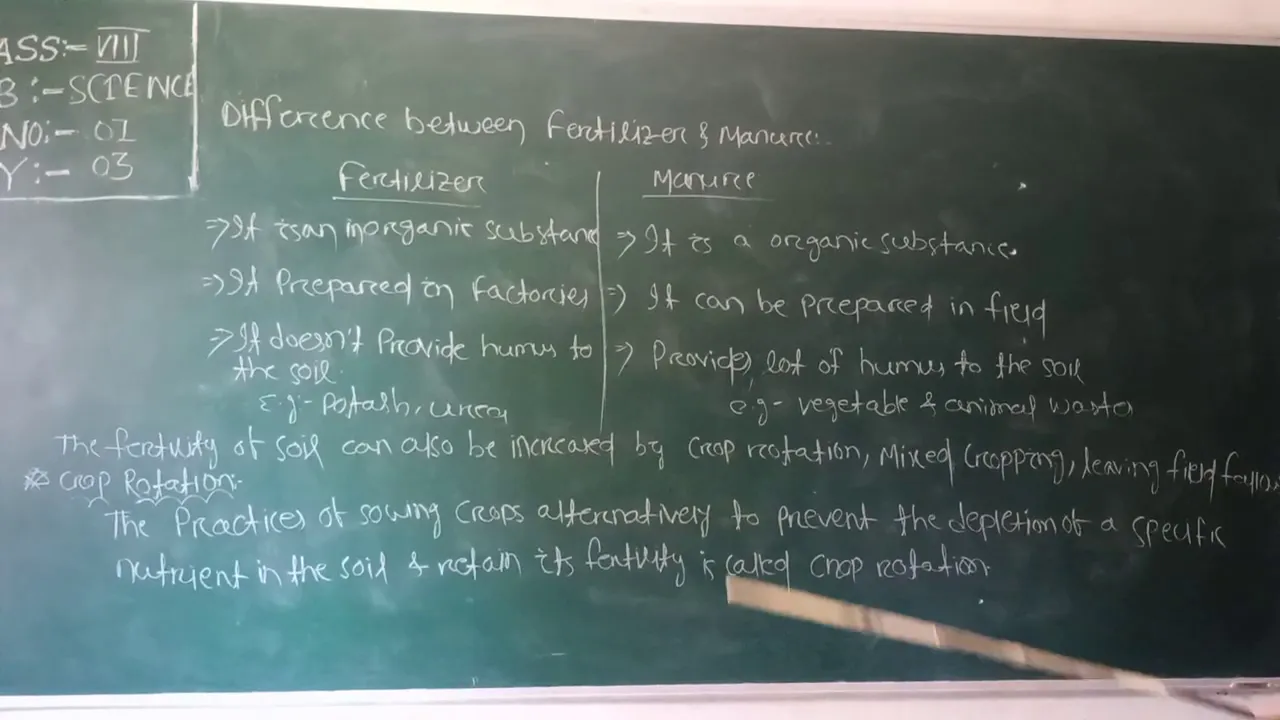 ASS:- VIII
B:- SCIENCE
NO:- 01
Y:- 03
Difference between Fertilizer & Manure:.
Fertilizer
Manure
⇒ It is an inorganic substanc
⇒ It is a organic substance.
⇒ It Prepared in factories
⇒ It can be prepared in field
⇒ It doesn't Provide humus to
the soil.
⇒ Provides lot of humus to the soil
E.g- Potash, urea
e.g- vegetable & animal waste
The fertility of soil can also be increased by crop rotation, Mixed Cropping, leaving field fallow
* Crop Rotation:-
The Practices of sowing crops alternatively to prevent the depletion of a specific
nutrient in the soil & retain its fertility is called crop rotation.